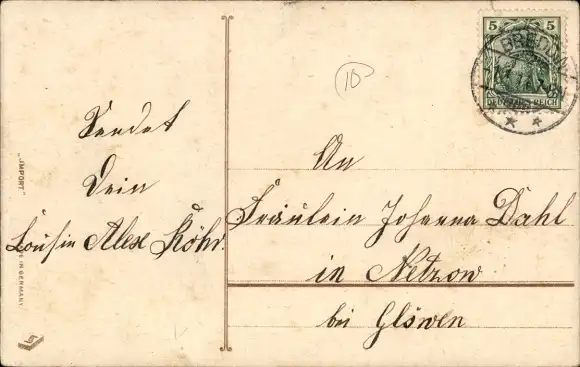 5 5
BREDOW
DEUTSCHES REICH
10
Sendet
Dein
Cousin Alex Köhr.
"IMPORT"
IN GERMANY
An
Fräulein Johanna Dahl
in Netzow
bei Glöwen